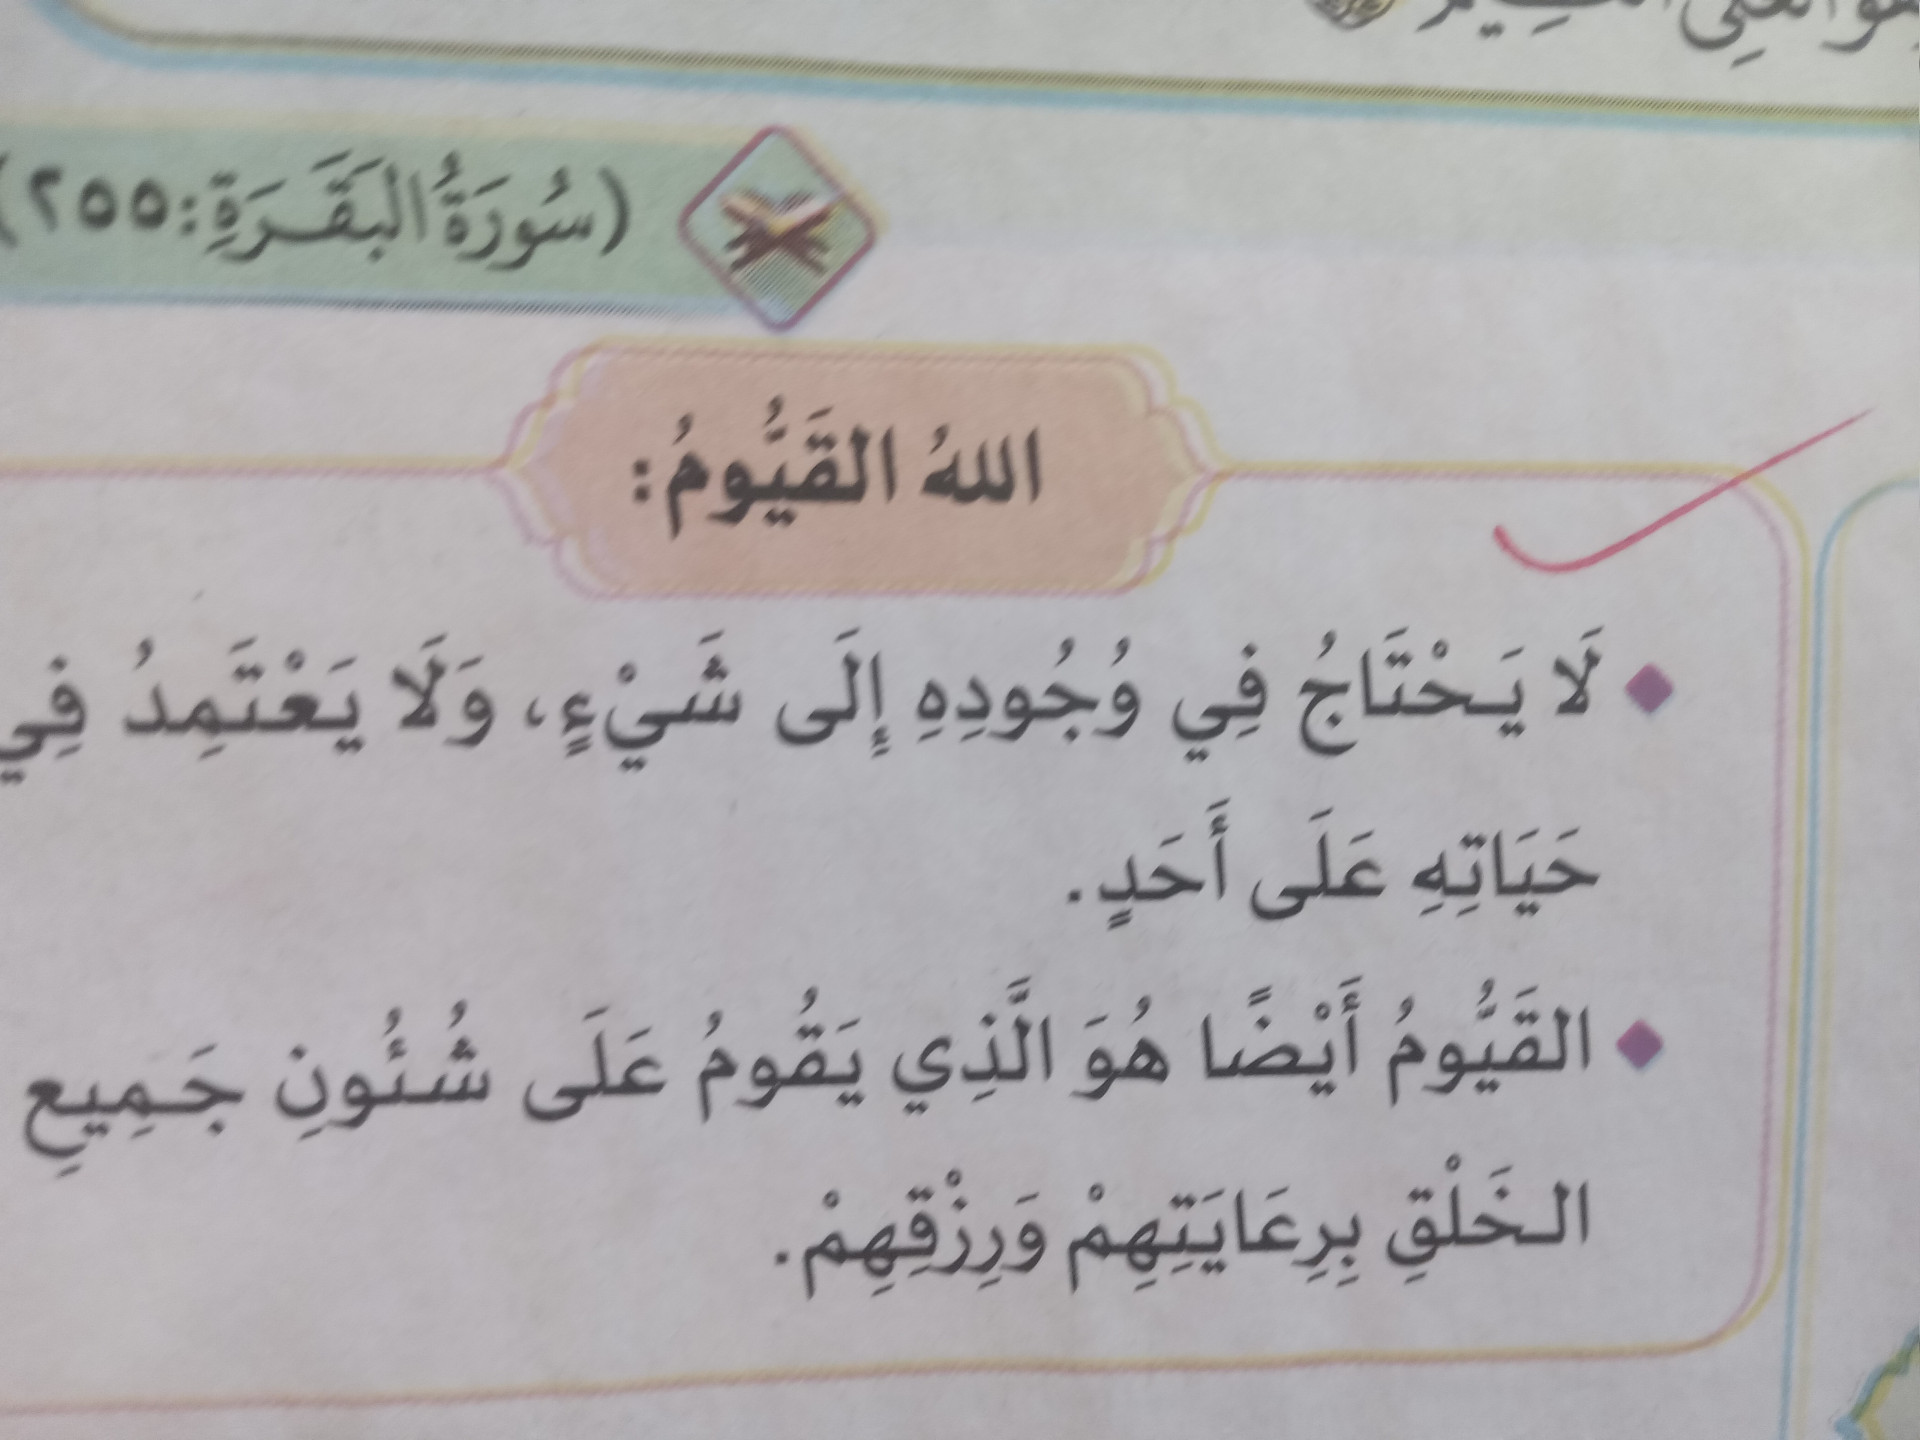 (سُورَةُ البَقَرَةِ:٢٥٥)
اللهُ القَيُّومُ:
لَا يَحْتَاجُ فِي وُجُودِهِ إِلَى شَيْءٍ، وَلَا يَعْتَمِدُ فِي
حَيَاتِهِ عَلَى أَحَدٍ.
القَيُّومُ أَيْضًا هُوَ الَّذِي يَقُومُ عَلَى شُئُونِ جَمِيعِ
الخَلْقِ بِرِعَايَتِهِمْ وَرِزْقِهِمْ.